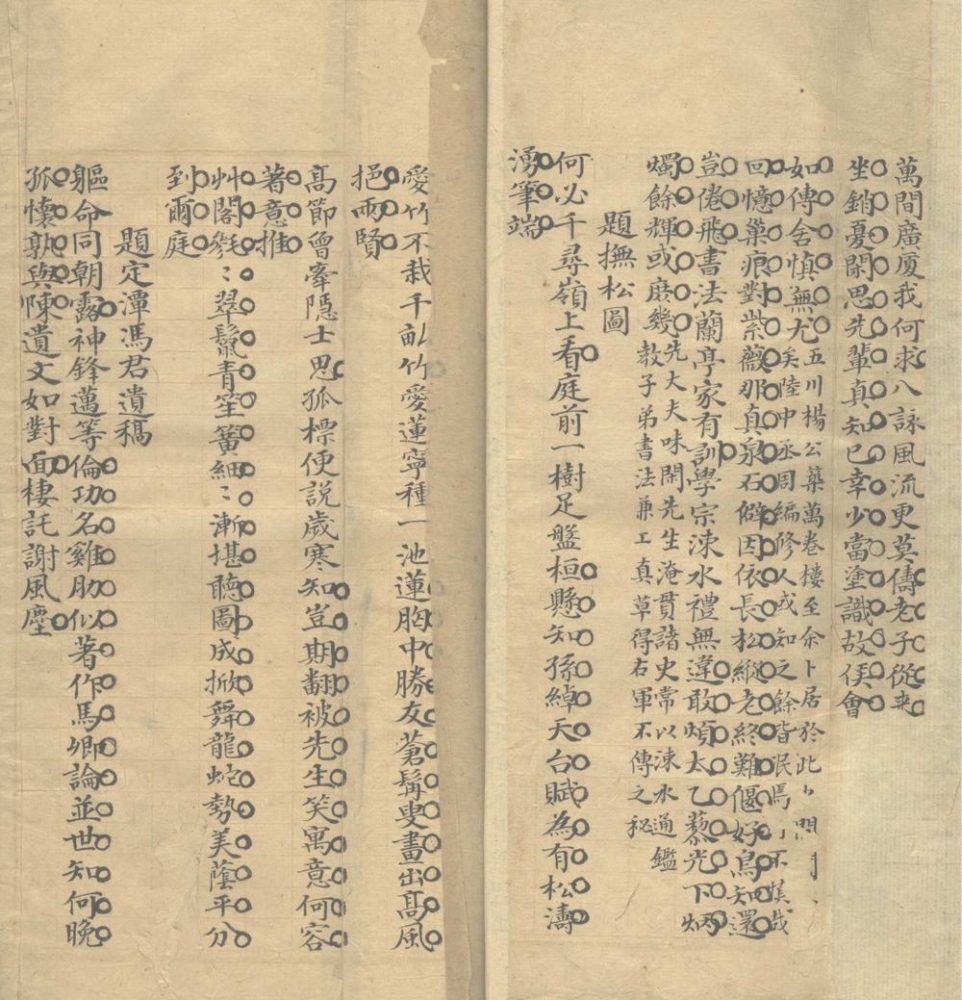 萬間廣厦我何求八詠風流更莫儔老子從來
坐銷憂閑思先輩真知已幸少當塗識故侯會
如傳舍慎無尤五川楊公築萬卷樓至余卜居於此
矣陸中丞周編修人或知之餘皆泯焉不慎哉
回憶巢痕對紫薇那真泉石僻因依長松縱老終難偃好鳥知還
豈倦飛書法蘭亭家有訓學宗涑水禮無違敢煩太乙藜光下炳
燭餘輝或庶幾先大夫味閑先生淹貫諸史常以涑水通鑑
教子弟書法兼工真草得右軍不傳之秘
題撫松圖
何必千尋嶺上看庭前一樹足盤桓懸知孫綽天台賦為有松濤
湧筆端
愛竹不栽千畝竹愛蓮寧種一池蓮胸中勝友蒼髯叟畫出高風
挹兩賢
高節曾牽隱士思孤標便說歲寒知豈期翻被先生笑寓意何容
著意推
艸閣毿〻翠鬣青笙簧細〻漸堪聽圖成掀舞龍蛇勢美蔭平分
到爾庭
題定潭馮君遺稿
軀命同朝露神鋒邁等倫功名雞肋似著作馬卿論並世知何晚
孤懷孰與陳遺文如對面棲託謝風塵